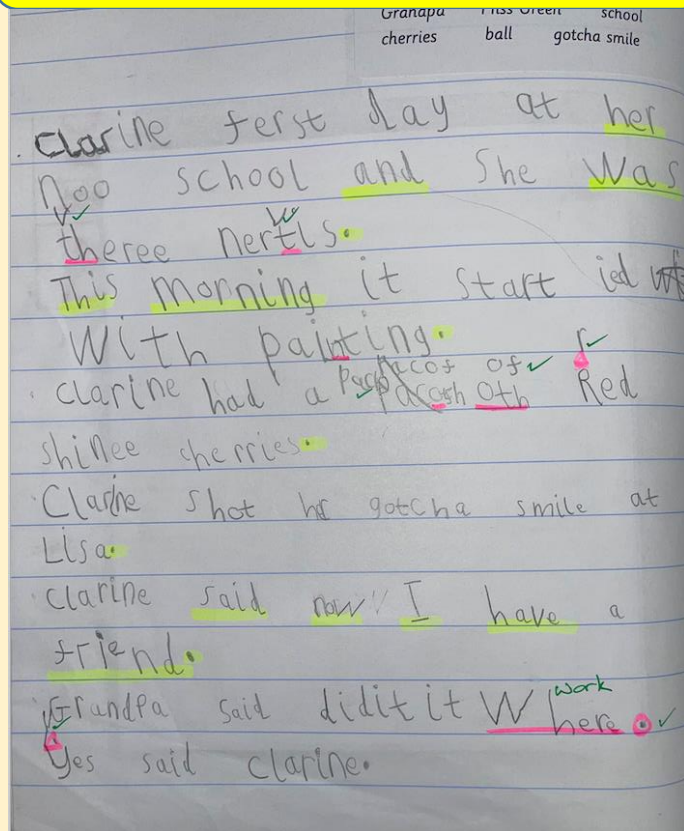 Grandpa Miss Green school
cherries ball gotcha smile
Clarine ferst day at her
noo school and she was
v w
theree nertis.
This morning it start ied
with painting.
pacos of r
clarine had a pacosh oth Red
shinee cherries.
Clarine shot hr gotcha smile at
Lisa.
clarine said now I have a
friend.
work
Grandpa said didit it Where.
Yes said clarine.